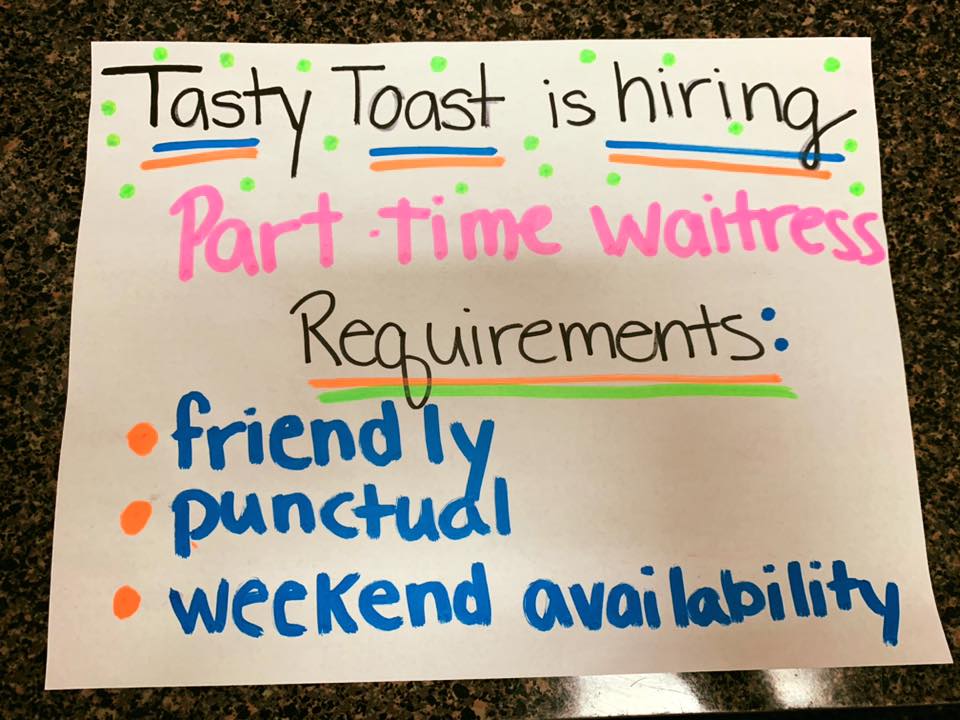 Tasty Toast is hiring
Part-time waitress
Requirements:
• friendly
• punctual
• weekend availability